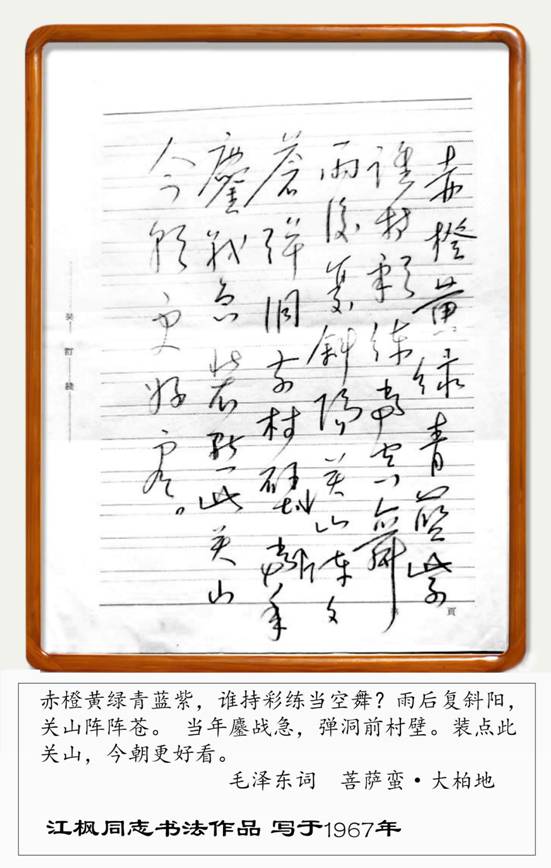 赤橙黄绿青蓝紫
谁持彩练当空舞
雨後复斜陽关山阵々
蒼弹洞前村壁當年
鏖战急装点此关山
今朝更好看。
装訂綫
頁
赤橙黄绿青蓝紫，谁持彩练当空舞？雨后复斜阳，
关山阵阵苍。 当年鏖战急，弹洞前村壁。装点此
关山，今朝更好看。
毛泽东词 菩萨蛮·大柏地
江枫同志书法作品 写于1967年